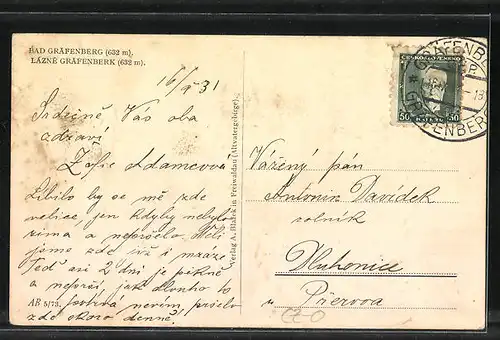 BAD GRÄFENBERG (632 m).
LÁZNĚ GRÄFENBERK (632 m).
16/9 31
Srdečně Vás oba
zdraví
Žofie Adamcova
Líbilo by se mě zde
velice, jen kdyby nebylo
zima a nepršelo. Měli
jsme zde již i mrazy
Teď asi 2 dni je pěkně
a neprší, jak dlouho to
potrvá nevím pršelo
zde skoro denně.
AB 5/73.
Verlag A. Blažek in Freiwaldau (Altvatergebirge).
ČESKOSLOVENSKO
50 50
GRÄFENBERG
GRÄFENBERK
Vážený pán
Antonín Davídek
rolník
Dluhonice
u Přerova